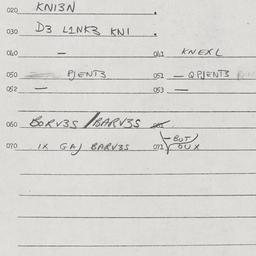 020 KNI3N
030 D3 L1NK3 KNI
040 — 041 KNEXL
050 PJENT3 051 — QPJENT3
052 — 053 —
060 BORV3S / BARV3S
070 IX GAJ BARV3S 071 — BUT / OUX